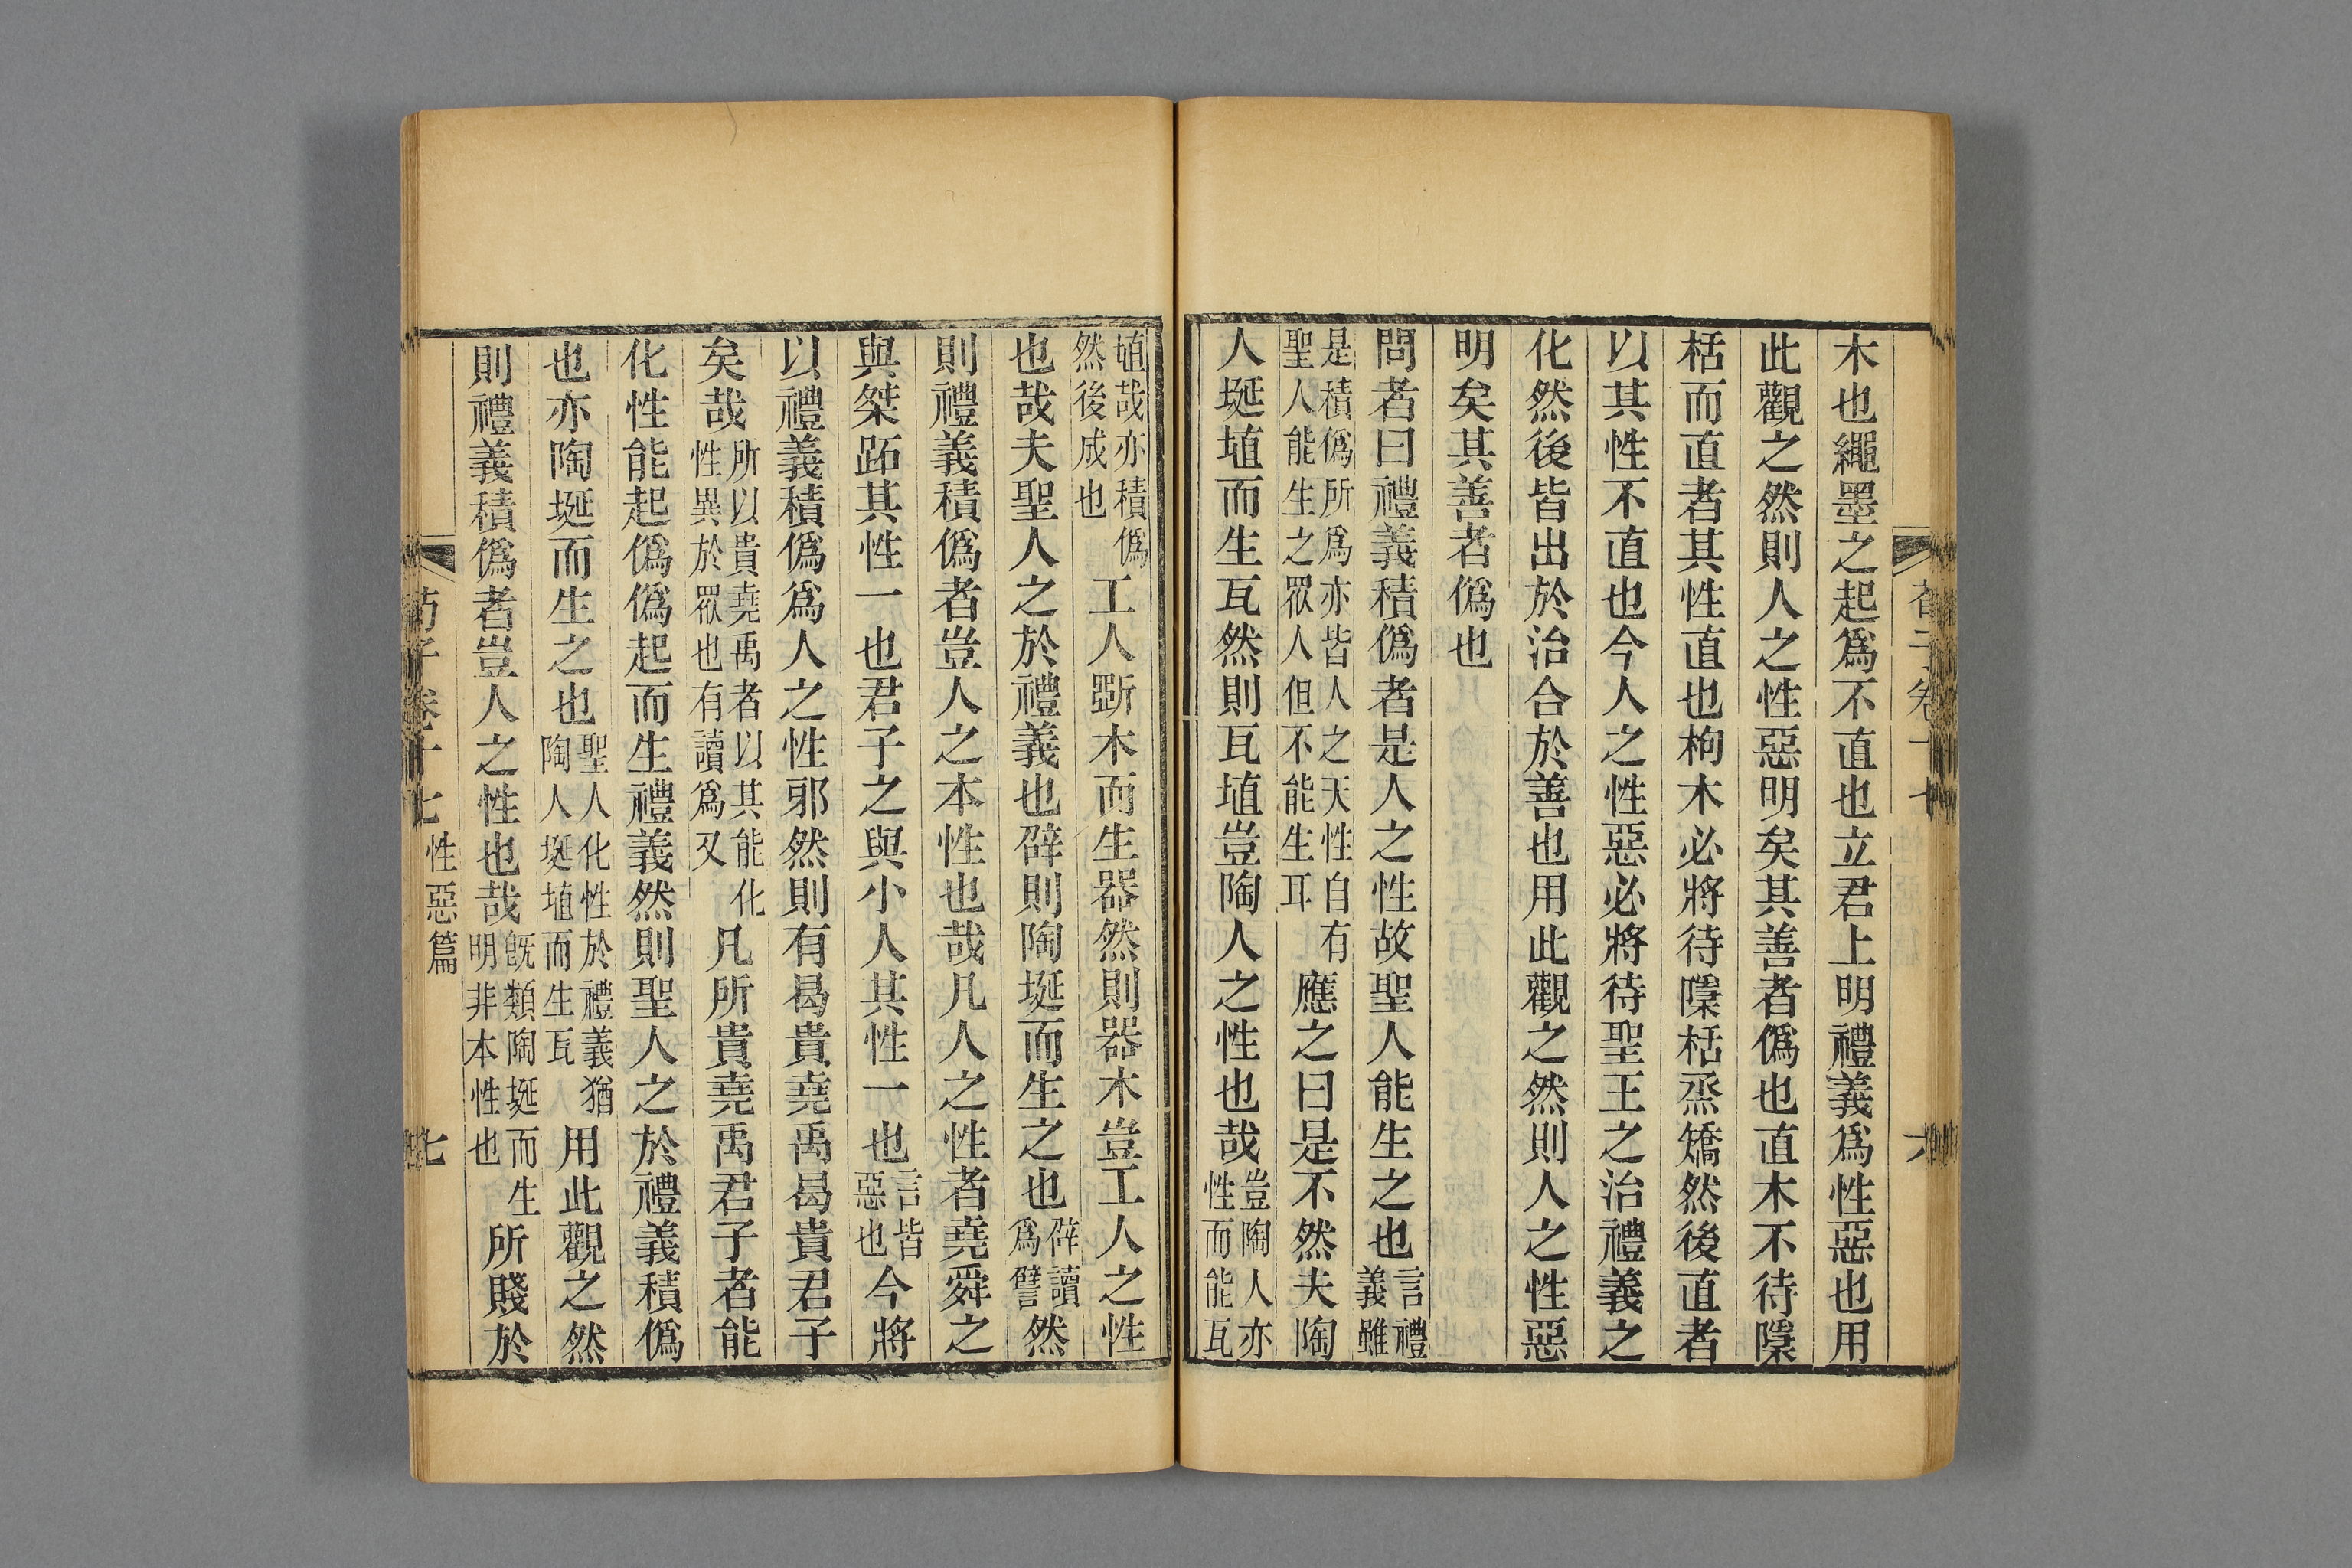 木也繩墨之起爲不直也立君上明禮義爲性惡也用
此觀之然則人之性惡明矣其善者僞也直木不待檃
栝而直者其性直也枸木必將待檃栝烝矯然後直者
以其性不直也今人之性惡必將待聖王之治禮義之
化然後皆出於治合於善也用此觀之然則人之性惡
明矣其善者僞也
問者曰禮義積僞者是人之性故聖人能生之也言禮義雖
是積僞所爲亦皆人之天性自有聖人能生之眾人但不能生耳應之曰是不然夫陶
人埏埴而生瓦然則瓦埴豈陶人之性也哉豈陶人亦性而能瓦
埴哉亦積僞然後成也工人斲木而生器然則器木豈工人之性
也哉夫聖人之於禮義也辟則陶埏而生之也辟讀爲譬然
則禮義積僞者豈人之本性也哉凡人之性者堯舜之
與桀跖其性一也君子之與小人其性一也言皆惡也今將
以禮義積僞爲人之性邪然則有曷貴堯禹曷貴君子
矣哉所以貴堯禹者以其能化性異於眾也有讀爲又凡所貴堯禹君子者能
化性能起僞僞起而生禮義然則聖人之於禮義積僞
也亦陶埏而生之也聖人化性於禮義猶陶人埏埴而生瓦用此觀之然
則禮義積僞者豈人之性也哉旣類陶埏而生明非本性也所賤於
荀子卷十七 性惡篇 七